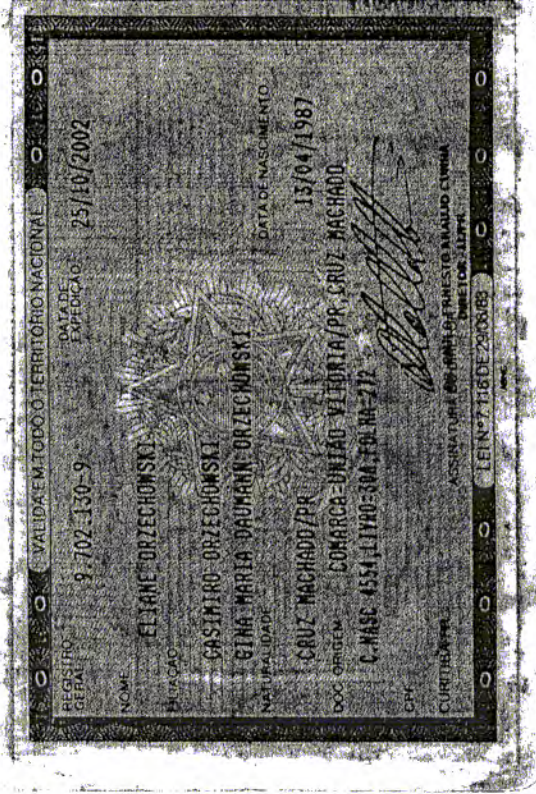 VÁLIDA EM TODO O TERRITÓRIO NACIONAL
REGISTRO GERAL 9.702.130-9 DATA DE EXPEDIÇÃO 25/10/2002
NOME
ELIANE ORZECHOWSKI
FILIAÇÃO
CASIMIRO ORZECHOWSKI
GINA MARIA DAUMANN ORZECHOWSKI
NATURALIDADE DATA DE NASCIMENTO
CRUZ MACHADO/PR 13/04/1987
DOC ORIGEM COMARCA=UNIAO VITORIA/PR, CRUZ MACHADO
C.NASC 4554, LIVRO=30A, FOLHA=272
CPF
CURITIBA/PR
ERNESTO ARAUJO CUNHA
ASSINATURA DIRETOR
LEI Nº 7.116 DE 29/08/83